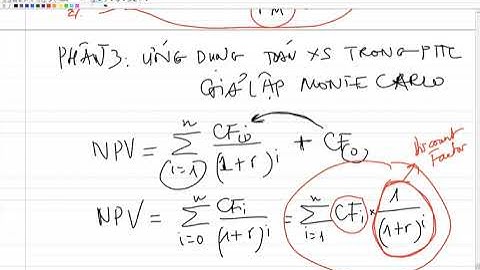 PHẦN 3: ỨNG DỤNG TOÁN XS TRONG PTTC
GIẢ LẬP MONTE CARLO
NPV = \sum_{i=1}^{n} \frac{CF_{(i)}}{(1+r)^i} + CF_{(0)}
Discount Factor
NPV = \sum_{i=0}^{n} \frac{CF_i}{(1+r)^i} = \sum_{i=1}^{n} CF_i * \frac{1}{(1+r)^i}